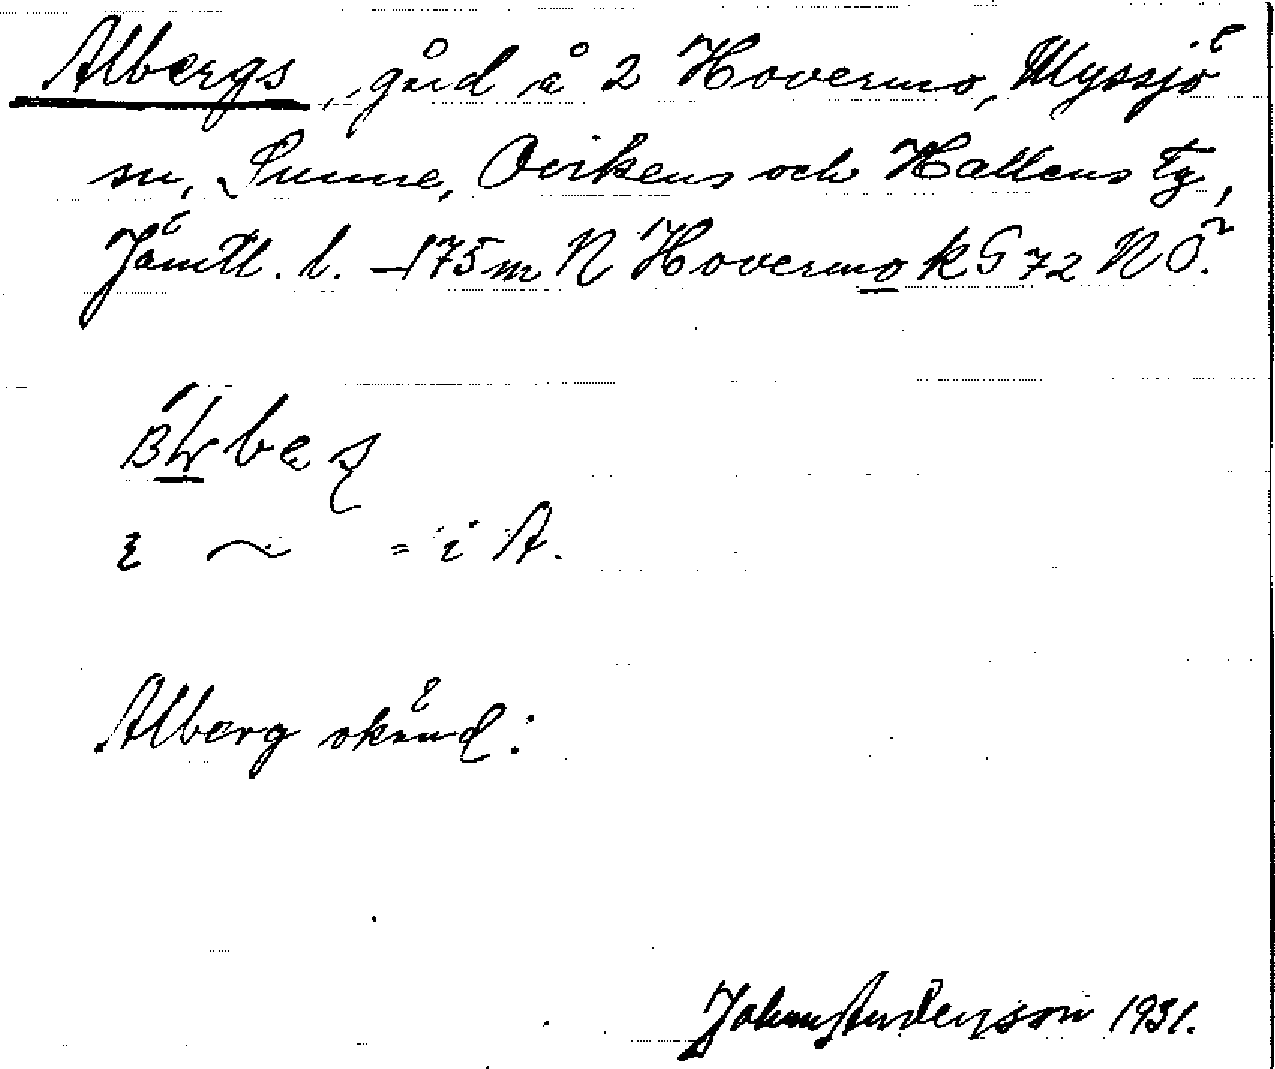 Albergs, gård å 2 Hovermo, Myssjö
sn, Sunne, Ovikens och Hallens tg,
Jämtl. l. – 175 m N Hovermo k G 72 N Ö.
= i A.
Alberg okänd:
Johan Andersson 1931.